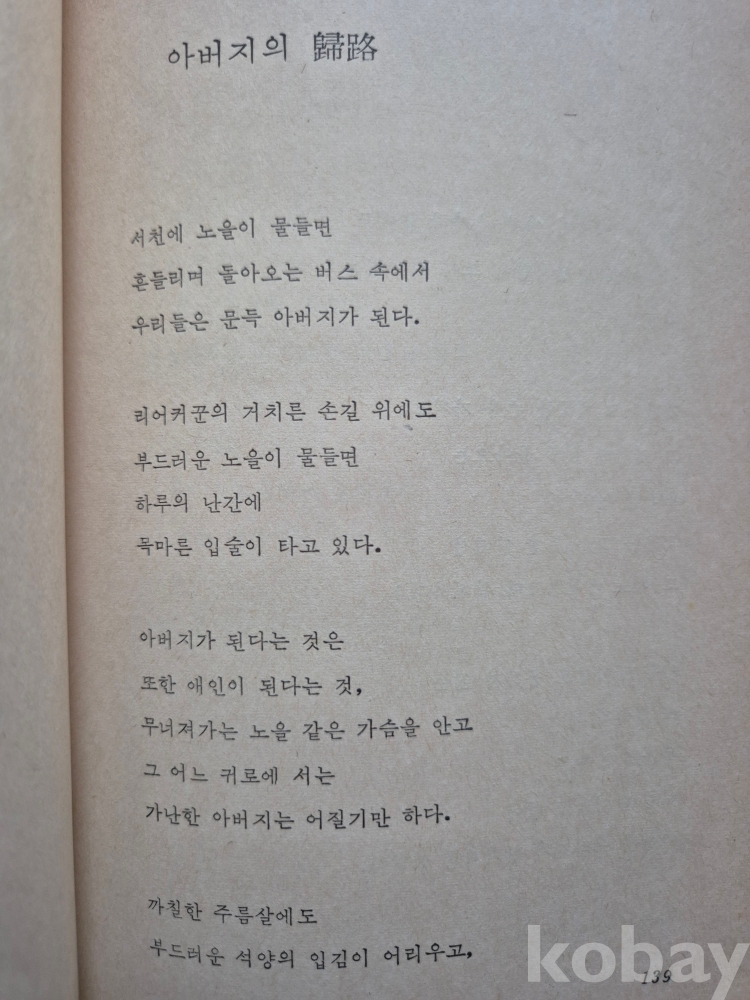 아버지의 歸路
서천에 노을이 물들면
흔들리며 돌아오는 버스 속에서
우리들은 문득 아버지가 된다.
리어커꾼의 거치른 손길 위에도
부드러운 노을이 물들면
하루의 난간에
목마른 입술이 타고 있다.
아버지가 된다는 것은
또한 애인이 된다는 것,
무너져가는 노을 같은 가슴을 안고
그 어느 귀로에 서는
가난한 아버지는 어질기만 하다.
까칠한 주름살에도
부드러운 석양의 입김이 어리우고,
139
kobay